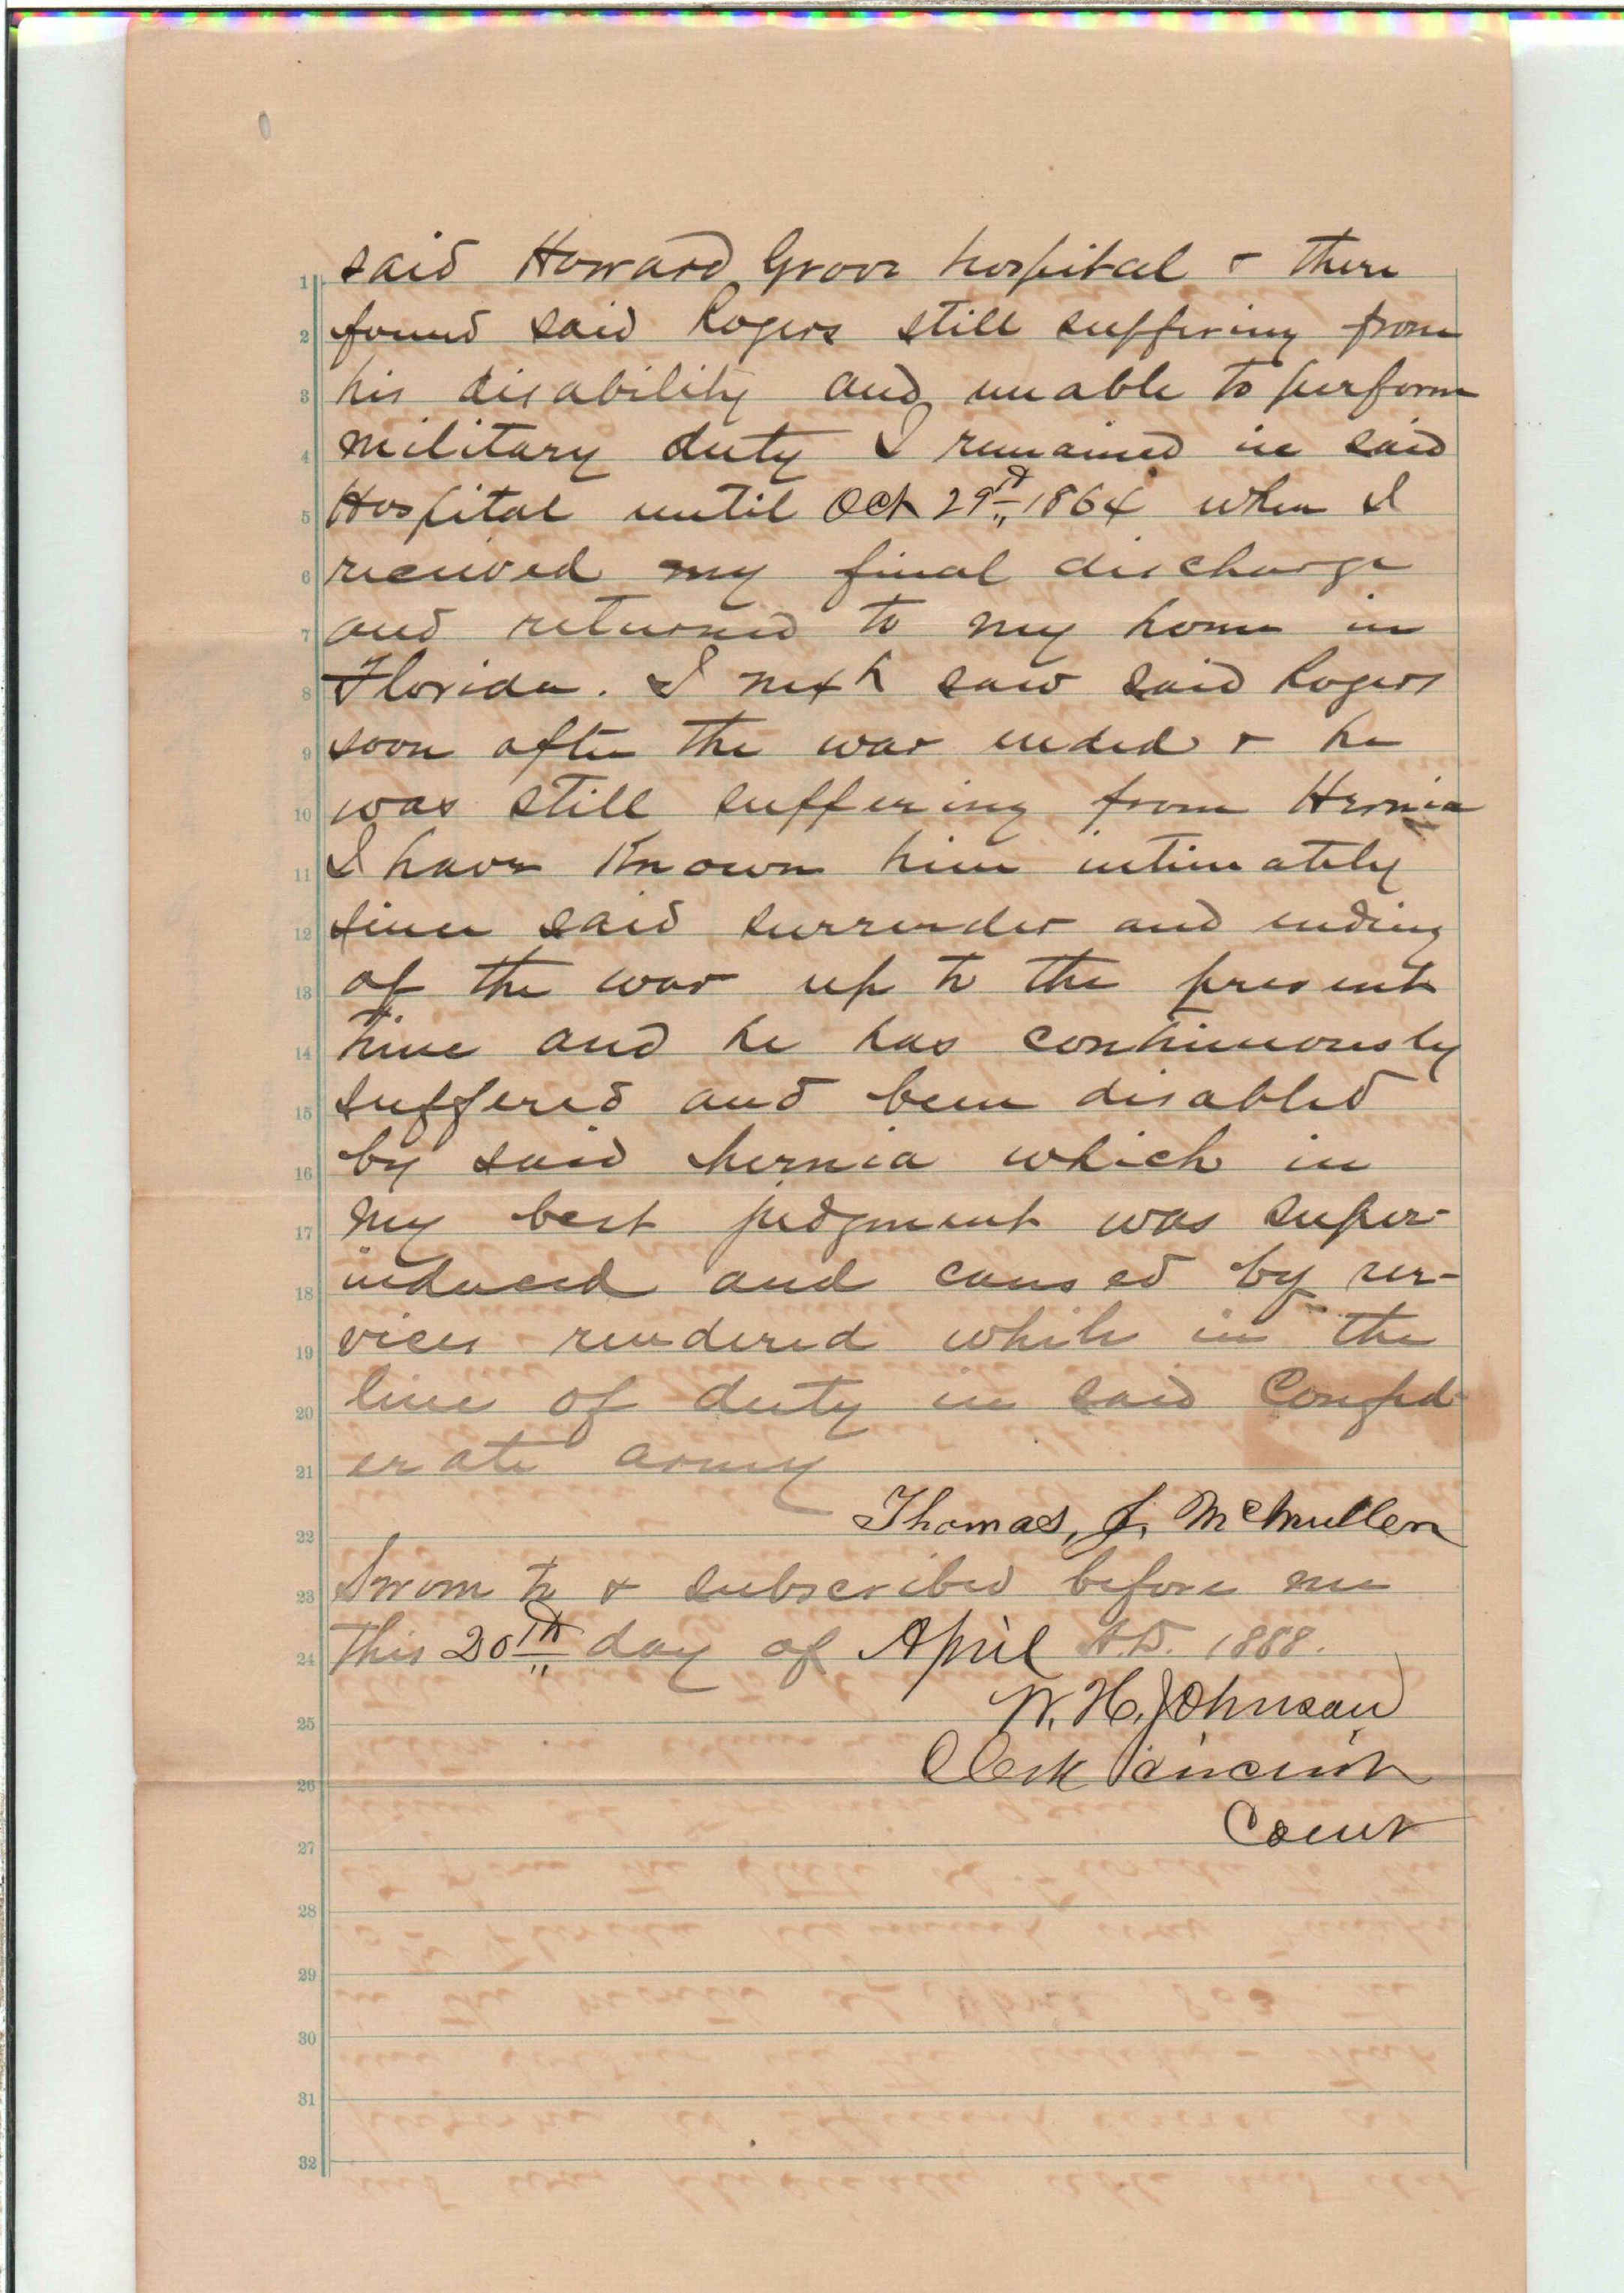 1 said Howard Grove hospital & there
2 found said Rogers still suffering from
3 his disability and unable to perform
4 military duty I remained in said
5 Hospital until Oct 29th 1864 when I
6 received my final discharge
7 and returned to my home in
8 Florida. I next saw said Rogers
9 soon after the war ended & he
10 was still suffering from Hernia
11 I have Known him intimately
12 since said surrender and ending
13 of the war up to the present
14 time and he has continuously
15 suffered and been disabled
16 by said hernia which in
17 my best judgment was super-
18 induced and caused by ser-
19 vices rendered while in the
20 line of duty in said Confed-
21 erate army
22 Thomas, J. McMullen
23 Sworn to & subscribed before me
24 this 20th day of April A.D. 1888.
25 W. H. Johnson
26 Clerk Circuit
27 Court
28
29
30
31
32